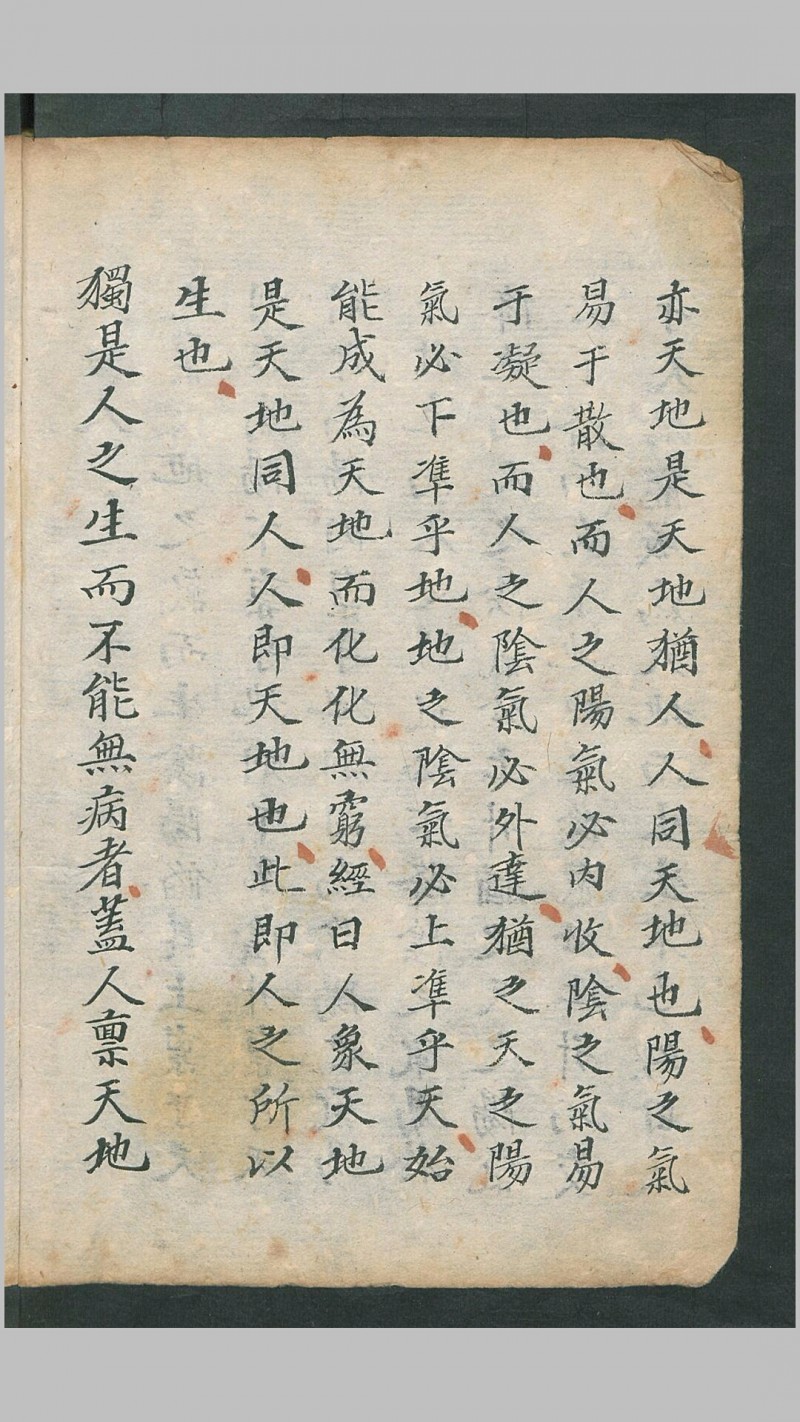 亦天地是天地猶人人同天地也陽之氣
易于散也而人之陽氣必内收陰之氣易
于凝也而人之陰氣必外達猶之天之陽
氣必下準乎地地之陰氣必上準乎天始
能成為天地而化化無窮經曰人象天地
是天地同人人即天地也此即人之所以
生也
獨是人之生而不能無病者蓋人禀天地